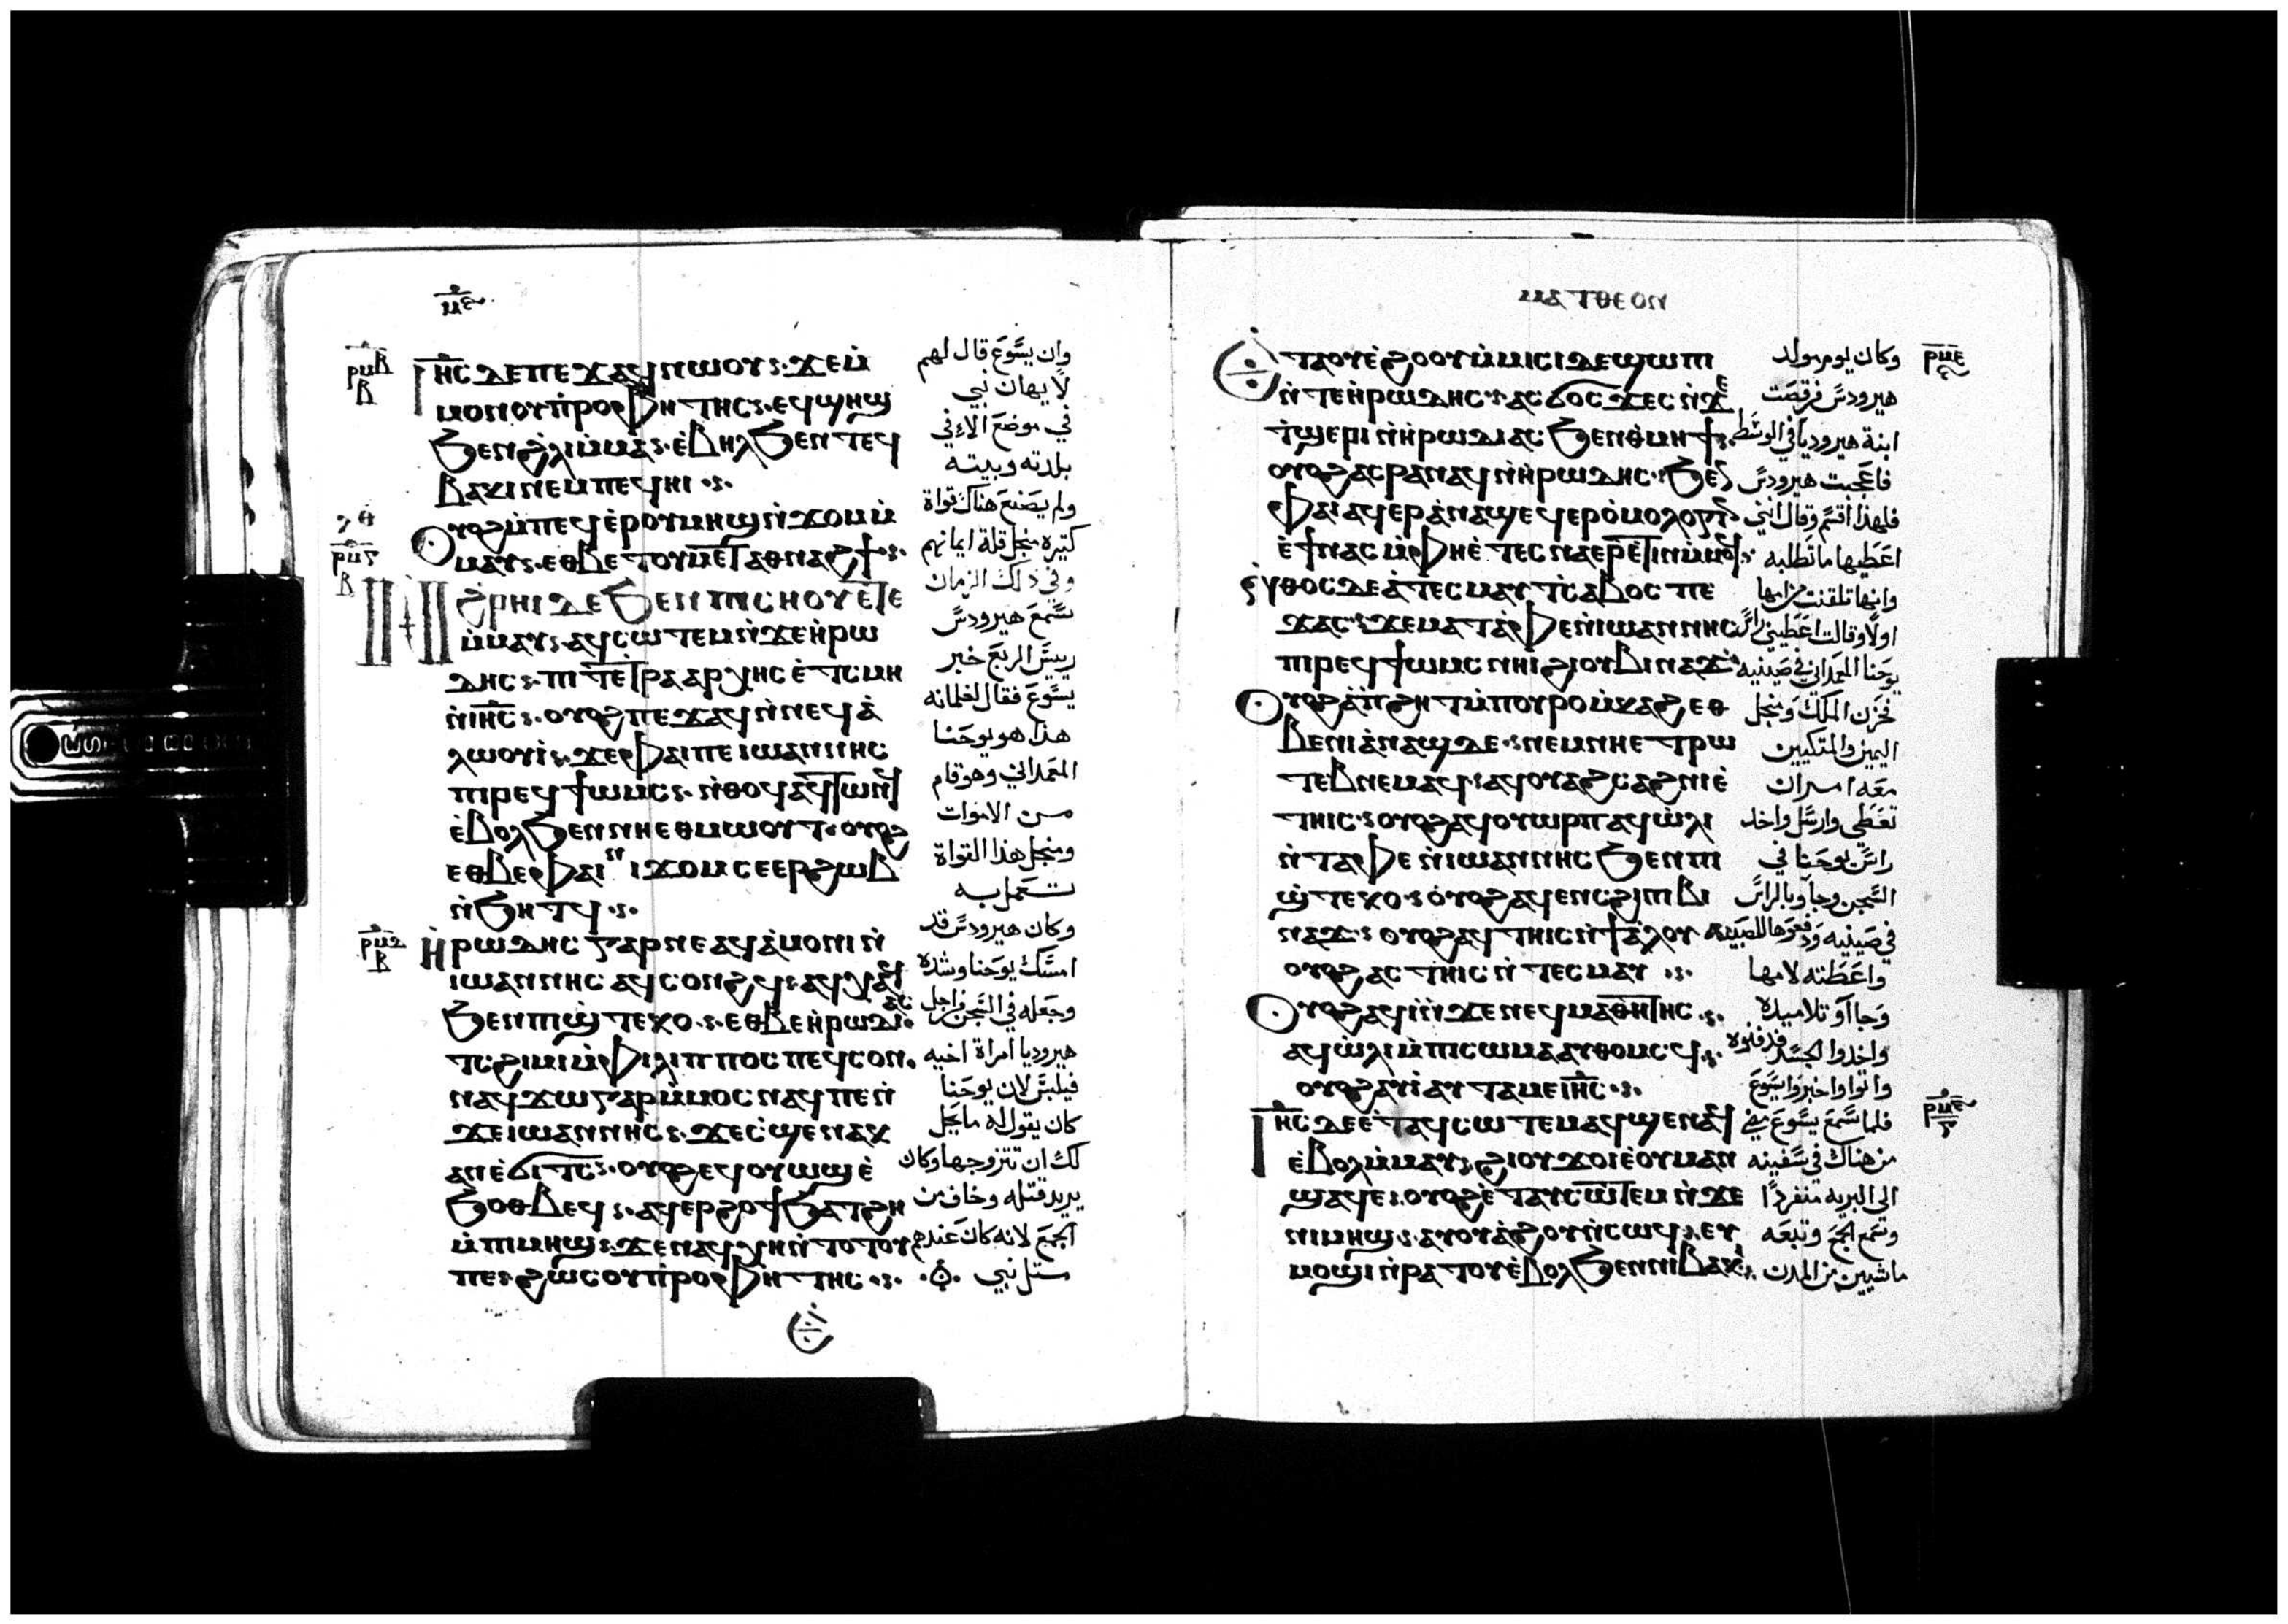 ⲓⲏⲥ ⲇⲉ ⲡⲉϫⲁϥ ⲛⲱⲟⲩ ϫⲉ ⲙ̇
ⲙⲟⲛ ⲟⲩⲡ̇ⲣⲟⲫⲏⲧⲏⲥ ⲉϥϣⲏϣ
ϧⲉⲛ ϩ̇ⲗⲓ ⲙ̇ⲙⲁ ⲉ̇ⲃⲏⲗ ϧⲉⲛ ⲧⲉϥ
ⲃⲁⲕⲓ ⲛⲉⲙ ⲡⲉϥⲏⲓ
ⲟⲩⲟϩ ⲙ̇ⲡⲉϥⲉ̇ⲣ ⲟⲩⲙⲏϣ ⲛ̇ϫⲟⲙ ⲙ̇
ⲙⲁⲩ ⲉⲑⲃⲉ ⲧⲟⲩⲙⲉⲧⲁⲑⲛⲁϩϯ
ⲛ̇ϩⲣⲏⲓ ⲇⲉ ϧⲉⲛ ⲡⲓⲥⲏⲟⲩ ⲉⲧⲉ
ⲙ̇ⲙⲁⲩ ⲁϥⲥⲱⲧⲉⲙ ⲛ̇ϫⲉ ⲏ̇ⲣⲱ
ⲇⲏⲥ ⲡⲓⲧⲉⲧⲣⲁⲁⲣⲭⲏⲥ ⲉ̇ⲧⲥⲙⲏ
ⲛ̇ⲓⲏⲥ ⲟⲩⲟϩ ⲡⲉϫⲁϥ ⲛ̇ⲛⲉϥⲁ̇
ⲗⲱⲟⲩⲓ̇ ϫⲉ ⲫⲁⲓ ⲡⲉ ⲓⲱⲁⲛⲛⲏⲥ
ⲡⲓⲣⲉϥϯⲱⲙⲥ ⲛ̇ⲑⲟϥ ⲁϥⲧⲱⲛϥ
ⲉ̇ⲃⲟⲗ ϧⲉⲛ ⲛⲏⲉⲑⲙⲱⲟⲩⲧ ⲟⲩⲟϩ
ⲉⲑⲃⲉ ⲫⲁⲓ ⲛⲓϫⲟⲙ ⲥⲉⲉⲣϩⲱⲃ
ⲛ̇ϧⲏⲧϥ
ⲏ̇ⲣⲱⲇⲏⲥ ⲅⲁⲣ ⲛⲉ ⲁϥⲁ̇ⲙⲟⲛⲓ ⲛ̇
ⲓⲱⲁⲛⲛⲏⲥ ⲁϥⲥⲟⲛϩϥ ⲁϥⲭⲁϥ
ϧⲉⲛ ⲡⲓϣ̇ⲧⲉⲕⲟ ⲉⲑⲃⲉ ⲏ̇ⲣⲱⲇⲓⲁⲥ
ⲧⲥϩⲓⲙⲓ ⲙ̇ⲫⲓⲗⲓⲡⲡⲟⲥ ⲡⲉϥⲥⲟⲛ
ⲛⲁϥϫⲱ ⲅⲁⲣ ⲙ̇ⲙⲟⲥ ⲛⲁϥ ⲡⲉ ⲛ̇
ϫⲉ ⲓⲱⲁⲛⲛⲏⲥ ϫⲉ ⲥ̇ϣⲉ ⲛⲁⲕ
ⲁⲛ ⲉ̇ϭⲓⲧⲥ ⲟⲩⲟϩ ⲉϥⲟⲩⲱϣ ⲉ̇
ϧⲟⲑⲃⲉϥ ⲁϥⲉⲣϩⲟϯ ϧⲁⲧϩⲏ
ⲙ̇ⲡⲓⲙⲏϣ ϫⲉ ⲛⲁϥⲭⲏ ⲛ̇ⲧⲟⲧⲟⲩ
ⲡⲉ ϩⲱⲥ ⲟⲩⲡ̇ⲣⲟⲫⲏⲧⲏⲥ
وان يسوع قال لهم
لا يهان نبي
في موضع الا في
بلدته وبيته
ولم يصنع هناك قواة
كتيره منجل قلة ايمانهم
وفي ذلك الزمان
سمع هيرودس
رييس الربع خبر
يسوع فقال لغلمانه
هذا هو يوحنا
المعمداني وهو قام
من الاموات
ومنجل هذا القواة
تعمل به
وكان هيرودس قد
امسك يوحنا وشده
وجعله في السجن من اجل
هيروديا امراة اخيه
فيلبس لان يوحنا
كان يقول له ما يحل
لك ان تتزوجها وكان
يريد قتله وخاف من
الجمع لانه كان عندهم
متل نبي
ⲙⲁⲧⲑⲉⲟⲛ
ⲉⲧⲁⲟⲩⲉ̇ϩⲟⲟⲩ ⲙ̇ⲙⲓⲥⲓ ⲇⲉ ϣⲱⲡⲓ
ⲛ̇ⲧⲉ ⲏ̇ⲣⲱⲇⲏⲥ ⲁⲥϭⲟⲥϫⲉⲥ ⲛ̇ϫⲉ
ⲧϣⲉⲣⲓ ⲛ̇ⲏ̇ⲣⲱⲇⲓⲁⲥ ϧⲉⲛ ⲑⲙⲏϯ
ⲟⲩⲟϩ ⲁⲥⲣⲁⲛⲁϥ ⲛ̇ⲏ̇ⲣⲱⲇⲏⲥ ϧⲉⲛ
ⲫⲁⲓ ⲁϥⲉⲣⲁ̇ⲛⲁϣ ⲉϥⲉⲣⲟ̇ⲙⲟⲗⲟⲅⲓⲛ
ⲉ̇ϯ ⲛⲁⲥ ⲙ̇ⲫⲏⲉ̇ⲧⲉⲥⲛⲁⲉⲣⲉ̇ⲧⲓⲛ ⲙ̇ⲙⲟϥ
ⲛ̇ⲑⲟⲥ ⲇⲉ ⲁ̇ ⲧⲉⲥⲙⲁⲩ ⲧⲥⲁⲃⲟⲥ ⲡⲉ
ϫⲁⲥ ϫⲉ ⲙⲁ ⲧⲁ̇ⲫⲉ ⲛ̇ⲓⲱⲁⲛⲛⲏⲥ
ⲡⲓⲣⲉϥϯⲱⲙⲥ ⲛⲏⲓ ϩⲓ ⲟⲩⲃⲓⲛⲁϫ
ⲟⲩⲟϩ ⲁ̇ ⲡ̇ϩⲏⲧ ⲙ̇ⲡⲟⲩⲣⲟ ⲙ̇ⲕⲁϩ ⲉⲑ
ⲃⲉ ⲛⲓⲁ̇ⲛⲁϣ ⲇⲉ ⲛⲉⲙ ⲛⲏⲉⲧⲣⲱ
ⲧⲉⲃ ⲛⲉⲙⲁϥ ⲁϥⲟⲩⲁϩⲥⲁϩⲛⲓ ⲉ̇
ⲧⲏⲓⲥ ⲟⲩⲟϩ ⲁϥⲟⲩⲱⲣⲡ ⲁϥⲱ̇ⲗⲓ
ⲛ̇ⲧⲁⲫⲉ ⲛ̇ⲓⲱⲁⲛⲛⲏⲥ ϧⲉⲛ ⲡⲓ
ϣ̇ⲧⲉⲕⲟ ⲟ̇ⲩⲟϩ ⲁϥⲉⲛⲥ ϩⲓ ⲡⲓⲃⲓ
ⲛⲁϫ ⲟⲩⲟϩ ⲁϥⲧⲏⲓⲥ ⲛ̇ϯⲁ̇ⲗⲟⲩ
ⲟⲩⲟϩ ⲁⲥⲧⲏⲓⲥ ⲛ̇ⲧⲉⲥⲙⲁⲩ
ⲟⲩⲟϩ ⲁϥⲓ̇ ⲛ̇ϫⲉ ⲛⲉϥⲙⲁⲑⲏⲧⲏⲥ
ⲁϥⲱ̇ⲗⲓ ⲙ̇ⲡⲓⲥⲱⲙⲁ ⲁⲩⲑⲟⲙⲥϥ
ⲟⲩⲟϩ ⲁⲩⲓ̇ ⲁⲩⲧⲁⲙⲉ ⲓⲏⲥ
ⲓⲏⲥ ⲇⲉ ⲉ̇ⲧⲁϥⲥⲱⲧⲉⲙ ⲁϥϣⲉⲛⲁϥ
ⲉ̇ⲃⲟⲗ ⲙ̇ⲙⲁⲩ ϩⲓ ⲟⲩϫⲟⲓ ⲉ̇ⲟⲩⲙⲁⲛ
ϣⲁϥⲉ ⲟⲩⲟϩ ⲉ̇ⲧⲁⲩⲥⲱⲧⲉⲙ ⲛ̇ϫⲉ
ⲛⲓⲙⲏϣ ⲁⲩⲟⲩⲁ̇ϩⲟⲩ ⲛ̇ⲥⲱϥ ⲉⲩ
ⲙⲟϣⲓ ⲛ̇ⲣⲁⲧⲟⲩ ⲉ̇ⲃⲟⲗ ϧⲉⲛ ⲛⲓⲃⲁⲕⲓ
وكان يوم مولد
هيرودس فرقصت
ابنة هيروديا في الوسط
فاعجبت هيرودس
فلهذا اقسم وقال انني
اعطيها ما تطلبه
وانها تلقنت من امها
اولا وقالت اعطيني راس
يوحنا المعمداني في صينيه
فحزن الملك ومنجل
اليمين والمتكيين
معه امر ان
تعطي وارسل واخد
راس يوحنا في
السجن وجاو بالراس
في صينيه ودفعوها للصبيه
واعطته لامها
وجااو تلاميده
واخدوا الجسد فدفنوه
واتوا واخبروا يسوع
فلما سمع يسوع مضي
من هناك في سفينه
الى البريه منفردا
وسمع الجمع وتبعه
ماشيين من المدن